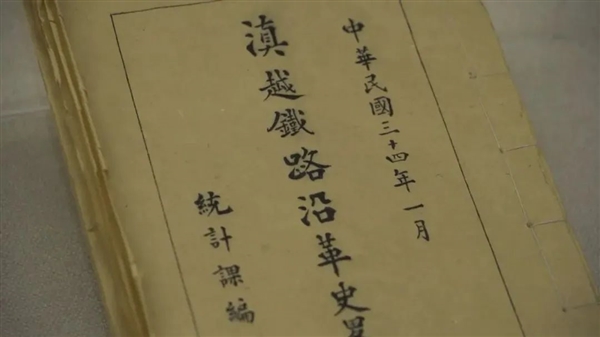 中華民國三十四年一月
滇越鐵路沿革史畧
統計課編